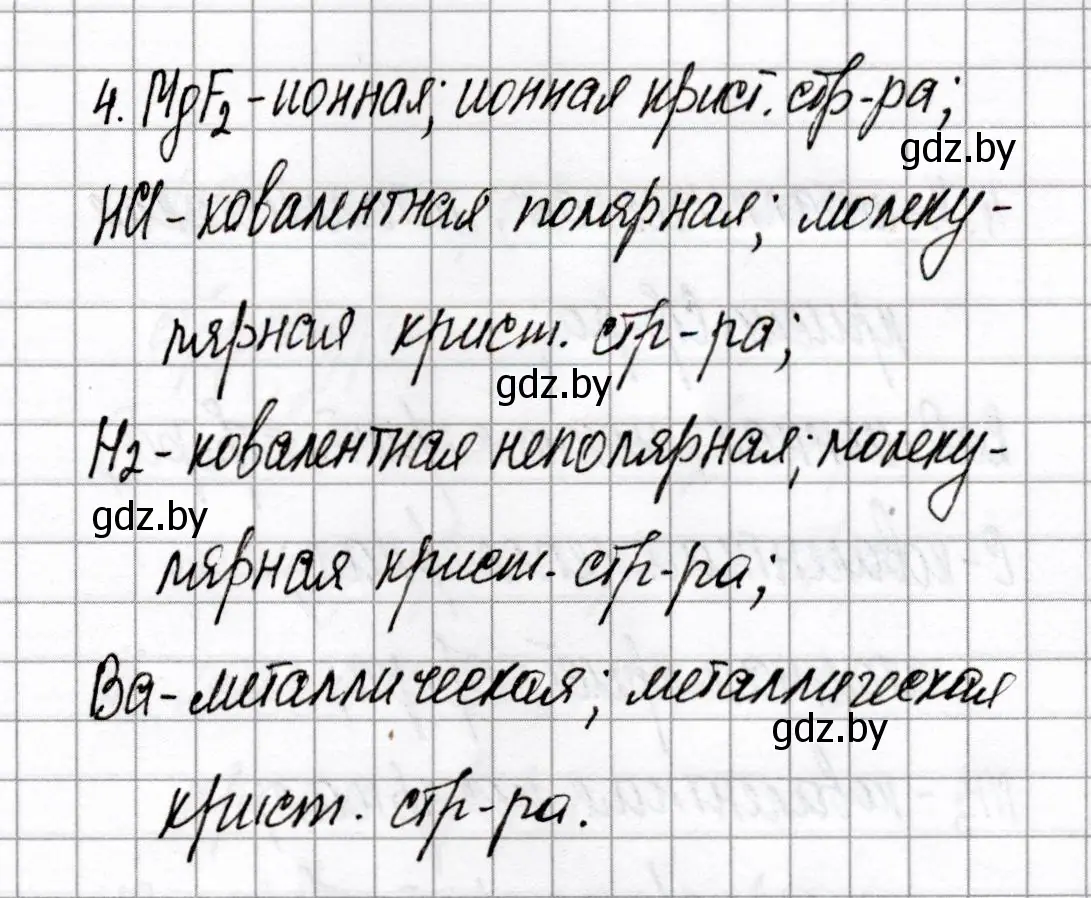 4. MgF₂ - ионная; ионная крист. стр-ра;
gdz.by
HCl - ковалентная полярная; молеку-
лярная крист. стр-ра;
gdz.by
H₂ - ковалентная неполярная; молеку-
gdz.by
лярная крист. стр-ра;
Ba - металлическая; металлическая
gdz.by
крист. стр-ра.